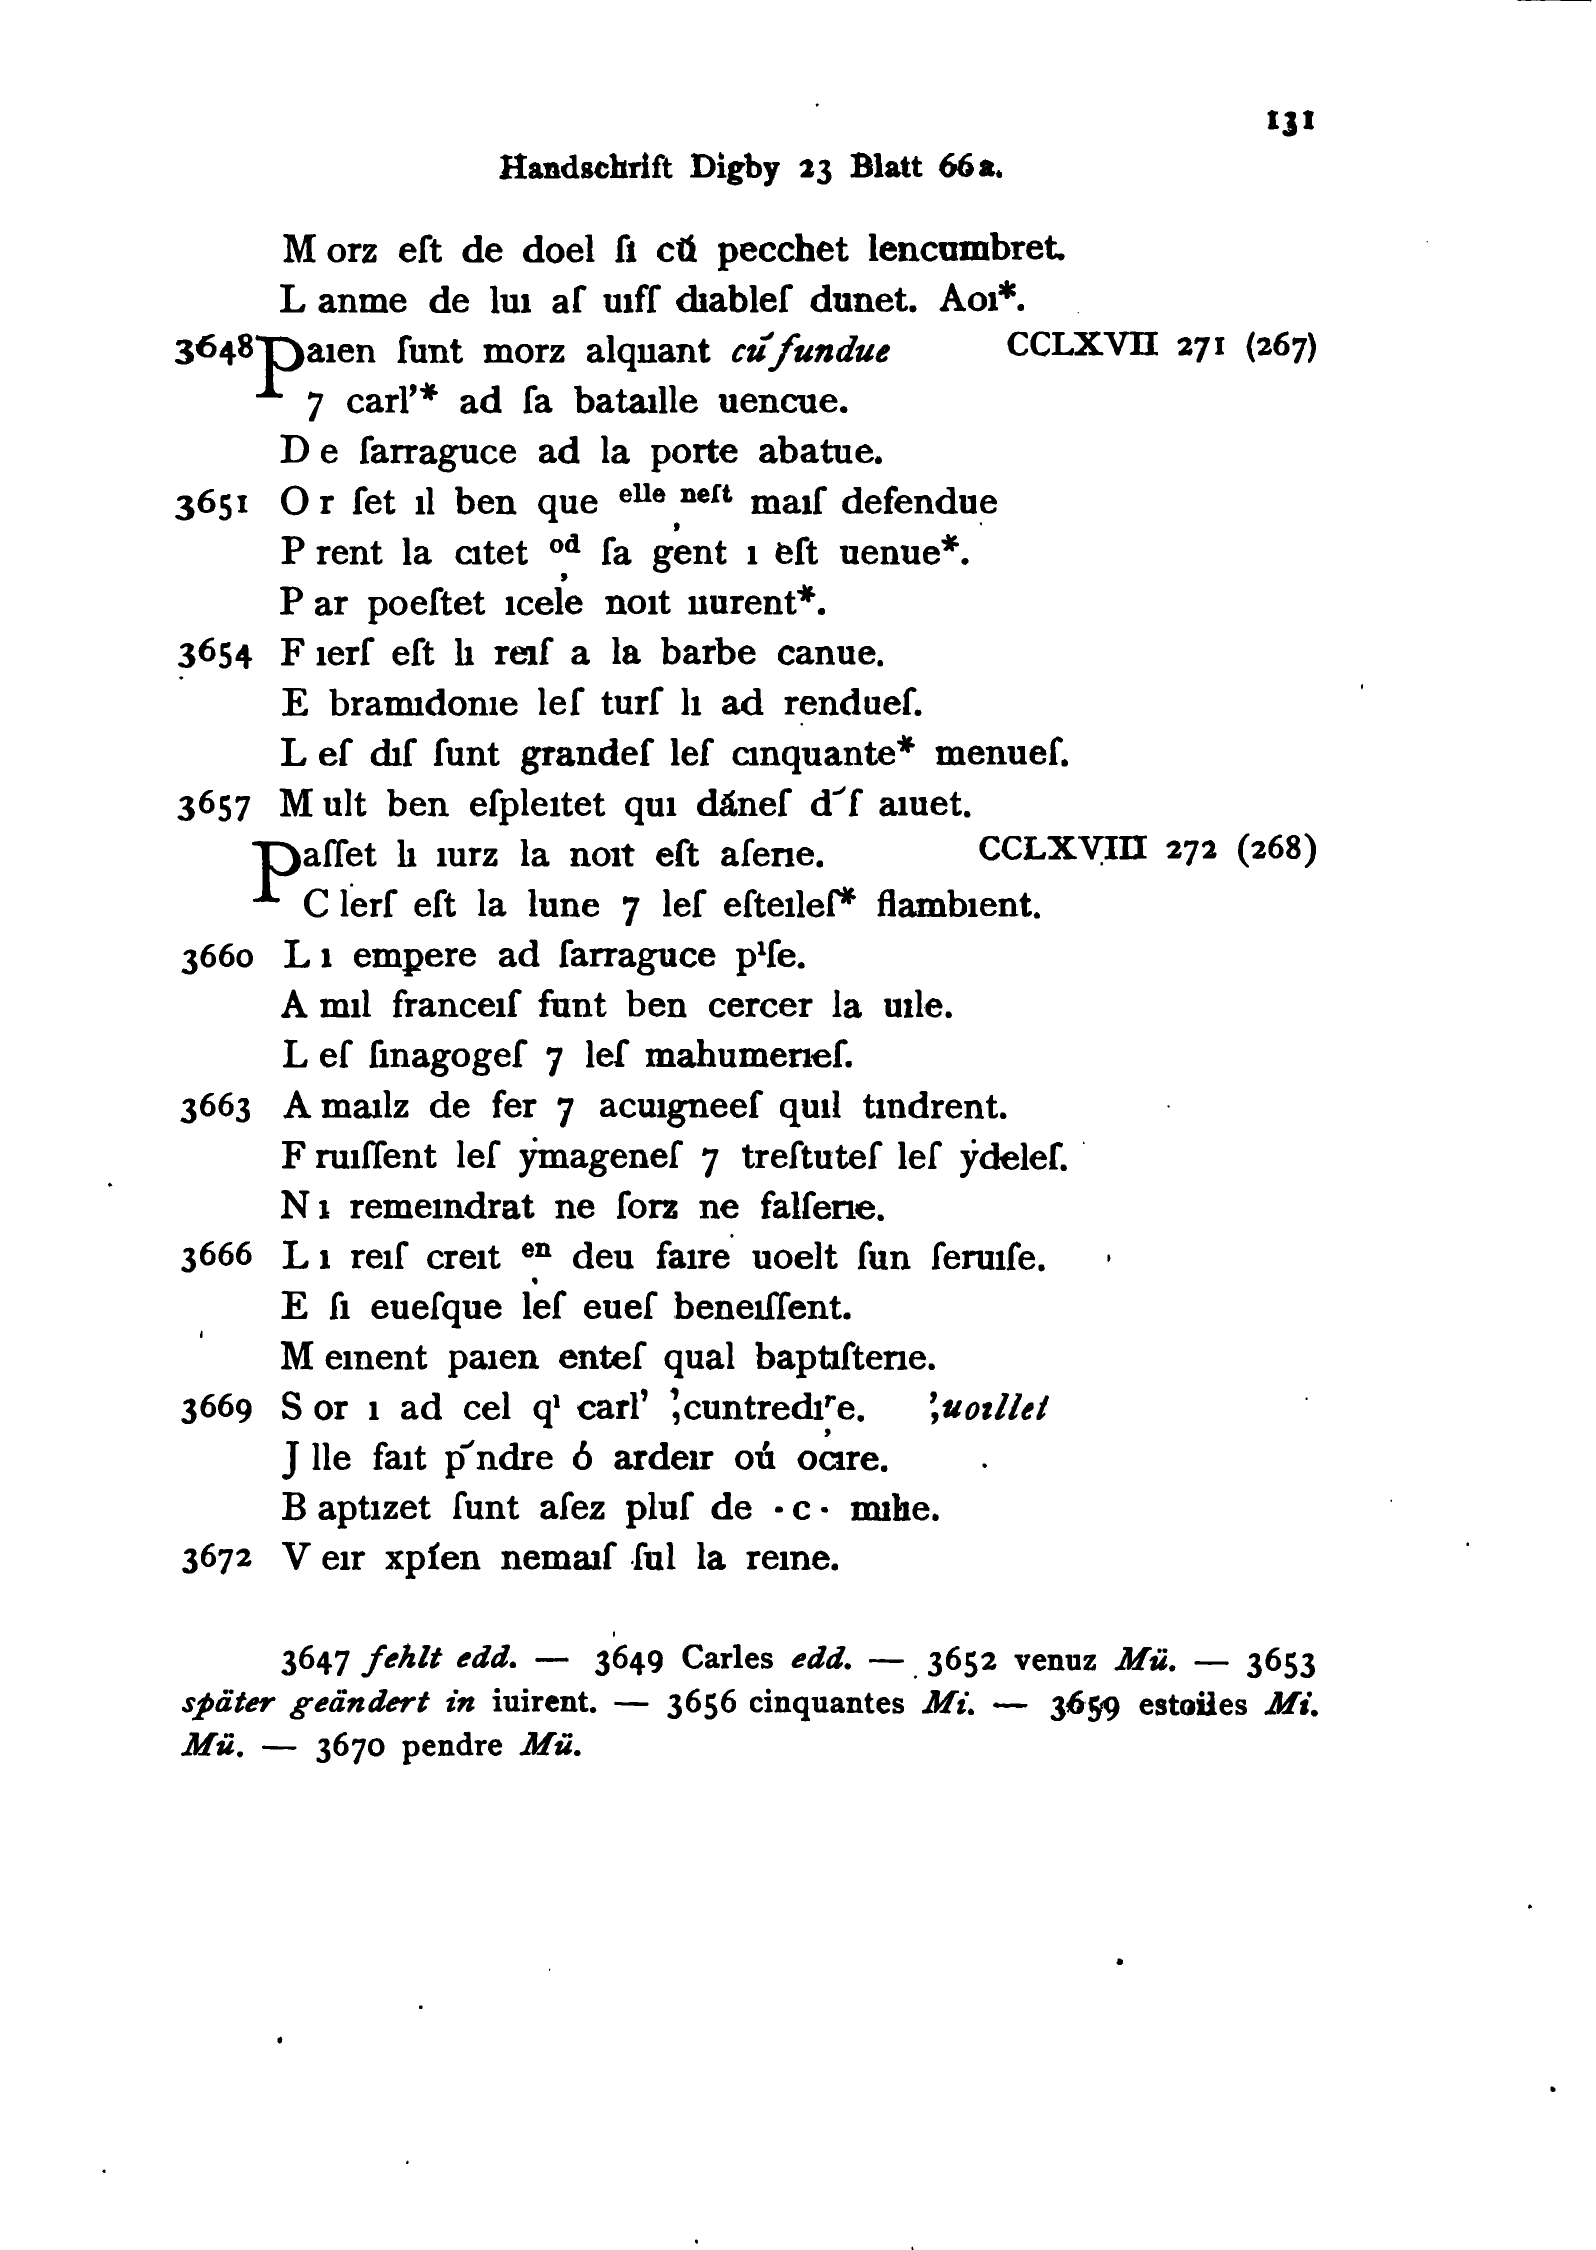 131
Handschrift Digby 23 Blatt 66a.
M orz eſt de doel ſı cū́ pecchet lencumbret.
L anme de luı aſ uıſſ dıableſ dunet. Aoı*.
3648 Paıen ſunt morz alquant cū́fundue CCLXVII 271 (267)
7 carl’* ad ſa bataılle uencue.
D e ſarraguce ad la porte abatue.
3651 O r ſet ıl ben que elle neſt maıſ defendue
P rent la cıtet od ſa gent ı eſt uenue*.
P ar poeſtet ıcele noıt uurent*.
3654 F ıerſ eſt lı reıſ a la barbe canue.
E bramıdonıe leſ turſ lı ad rendueſ.
L eſ dıſ ſunt grandeſ leſ cınquante* menueſ.
3657 M ult ben eſpleıtet quı dā́neſ d ̄́ſ aıuet.
Paſſet lı ıurz la noıt eſt aſerıe. CCLXVIII 272 (268)
C lerſ eſt la lune 7 leſ eſteıleſ* flambıent.
3660 L ı empere ad ſarraguce pıſe.
A mıl franceıſ funt ben cercer la uıle.
L eſ ſınagogeſ 7 leſ mahumerıeſ.
3663 A maılz de fer 7 acuıgneeſ quıl tındrent.
F ruıſſent leſ ẏmageneſ 7 treſtuteſ leſ ẏdeleſ.
N ı remeındrat ne ſorz ne falſerıe.
3666 L ı reıſ creıt en deu faıre uoelt ſun ſeruıſe.
E ſı eueſque leſ eueſ beneıſſent.
M eınent paıen enteſ qual baptıſterıe.
3669 S or ı ad cel qı carl’ ’,cuntredıre. ’,uoıllet
J lle faıt p ̄́ndre ó ardeır oú ocıre.
B aptızet ſunt aſez pluſ de · c · mılıe.
3672 V eır xpíen nemaıſ ſul la reıne.
3647 fehlt edd. — 3649 Carles edd. — 3652 venuz Mü. — 3653
später geändert in iuirent. — 3656 cinquantes Mi. — 3659 estoiles Mi.
Mü. — 3670 pendre Mü.